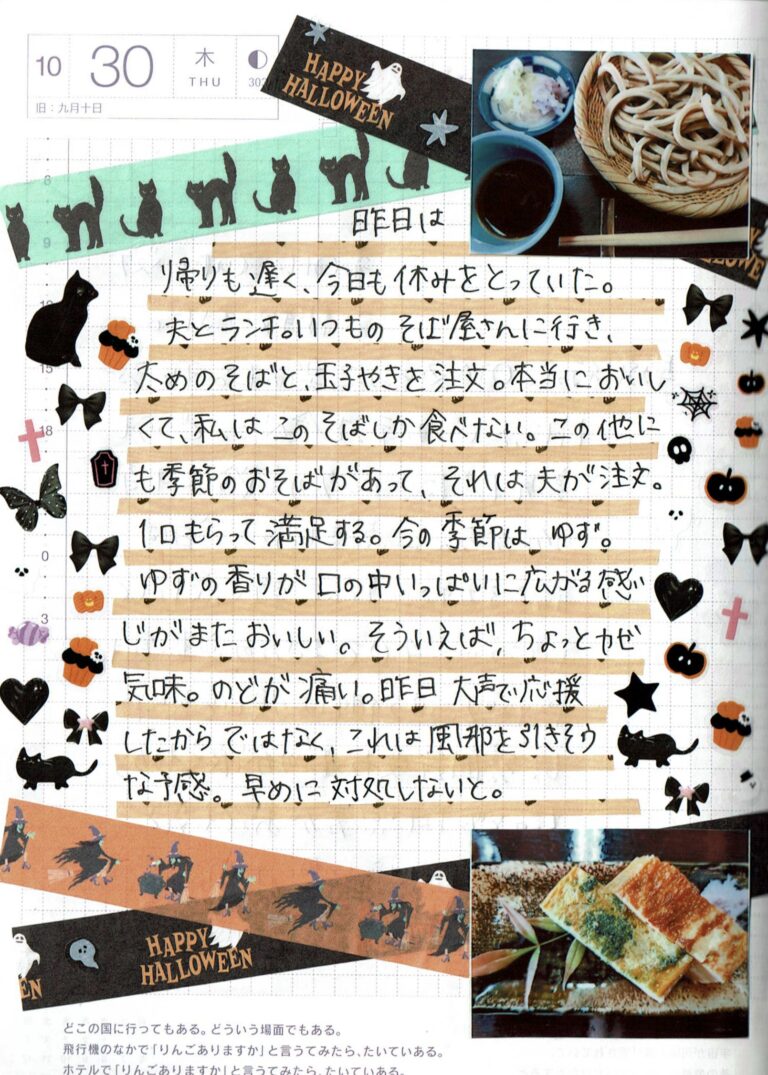 10 30 木
THU 303
旧:九月十日
HAPPY
HALLOWEEN
8
9
昨日は
帰りも遅く、今日も休みをとっていた。
夫とランチ。いつものそば屋さんに行き、
太めのそばと、玉子やきを注文。本当においし
くて、私はこのそばしか食べない。この他に
も季節のおそばがあって、それは夫が注文。
1口もらって満足する。今の季節は ゆず。
ゆずの香りが口の中いっぱいに広がる感
じがまたおいしい。そういえば、ちょっとカゼ
気味。のどが痛い。昨日 大声で応援
したからではなく、これは風邪を引きそう
な予感。早めに対処しないと。
15
18
0
3
HAPPY
HALLOWEEN
EN
どこの国に行ってもある。どういう場面でもある。
飛行機のなかで「りんごありますか」と言うてみたら、たいていある。
ホテルで「りんごありますか」と言うてみたら、たいていある。